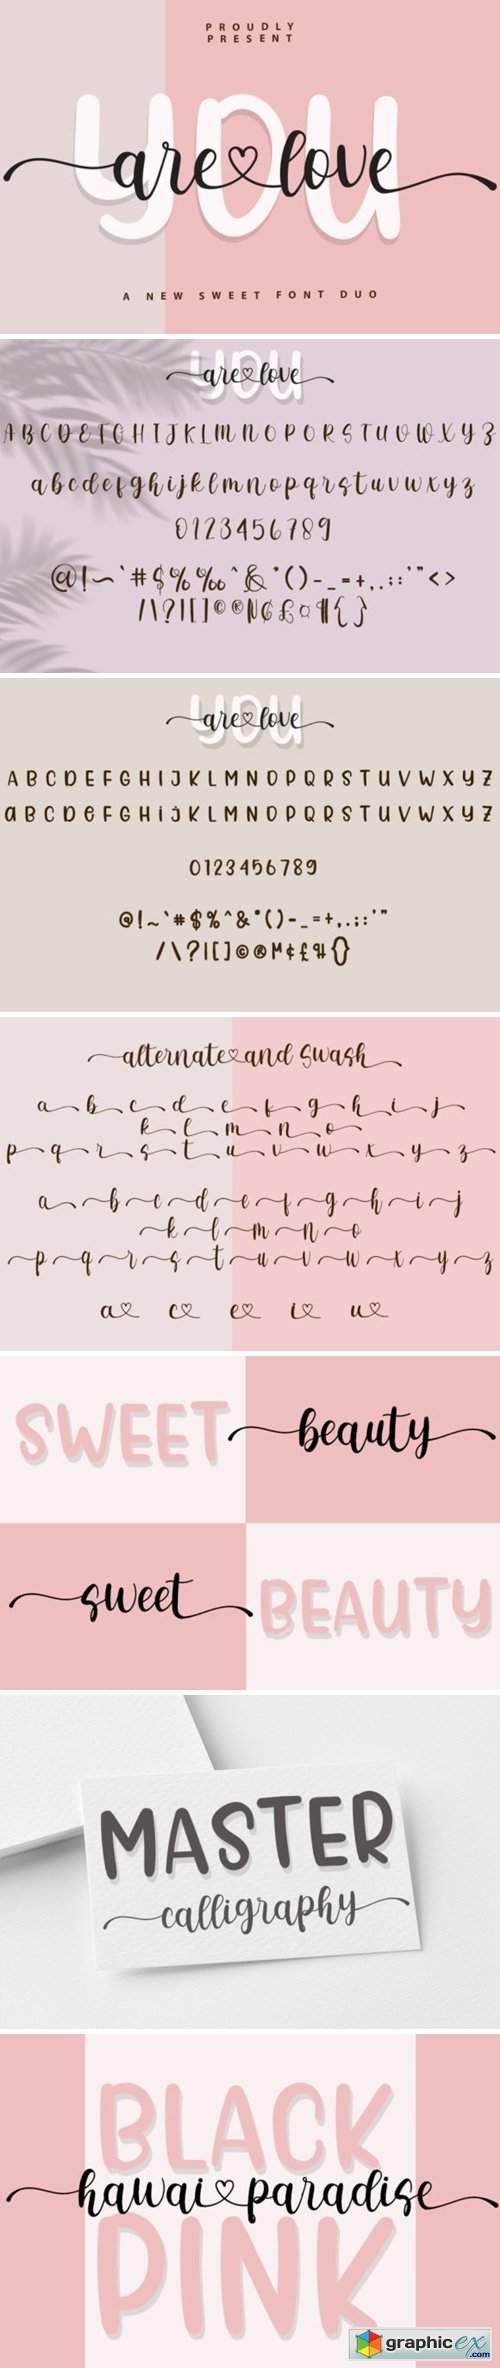 PROUDLY
PRESENT
YOU
are love
A NEW SWEET FONT DUO
YOU
are love
A B C D E F G H I J K L M N O P Q R S T U V W X Y Z
a b c d e f g h i j k l m n o p q r s t u v w x y z
0 1 2 3 4 5 6 7 8 9
@ ! ~ ` # $ % ‰ ^ & * ( ) - _ = + , . ; : ' " < >
/ \ ? | [ ] © ® ¢ £ ¤ ¶ { }
YOU
are love
A B C D E F G H I J K L M N O P Q R S T U V W X Y Z
a B C D e F G H i J K L M N O P Q R S T U V W X Y Z
0 1 2 3 4 5 6 7 8 9
@ ! ~ ` # $ % ^ & * ( ) - _ = + , . ; : ' "
/ \ ? | [ ] © ® ¢ £ { }
alternate and swash
a b c d e f g h i j
k l m n o
p q r s t u v w x y z
a b c d e f g h i j
k l m n o
p q r s t u v w x y z
a c e i u
SWEET
beauty
sweet
BEAUTY
MASTER
calligraphy
BLACK
hawai paradise
PINK
graphicex
.com